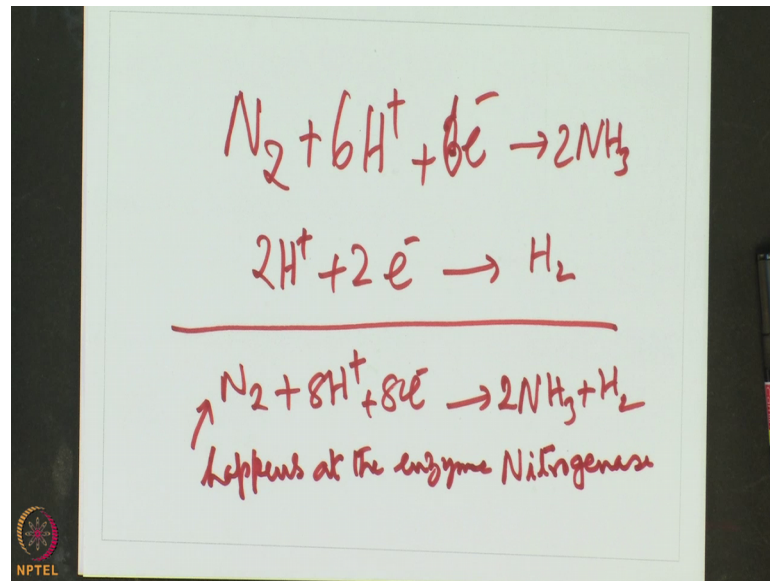 N₂ + 6H⁺ + 6e⁻ → 2NH₃
2H⁺ + 2e⁻ → H₂
N₂ + 8H⁺ + 8e⁻ → 2NH₃ + H₂
happens at the enzyme Nitrogenase
NPTEL